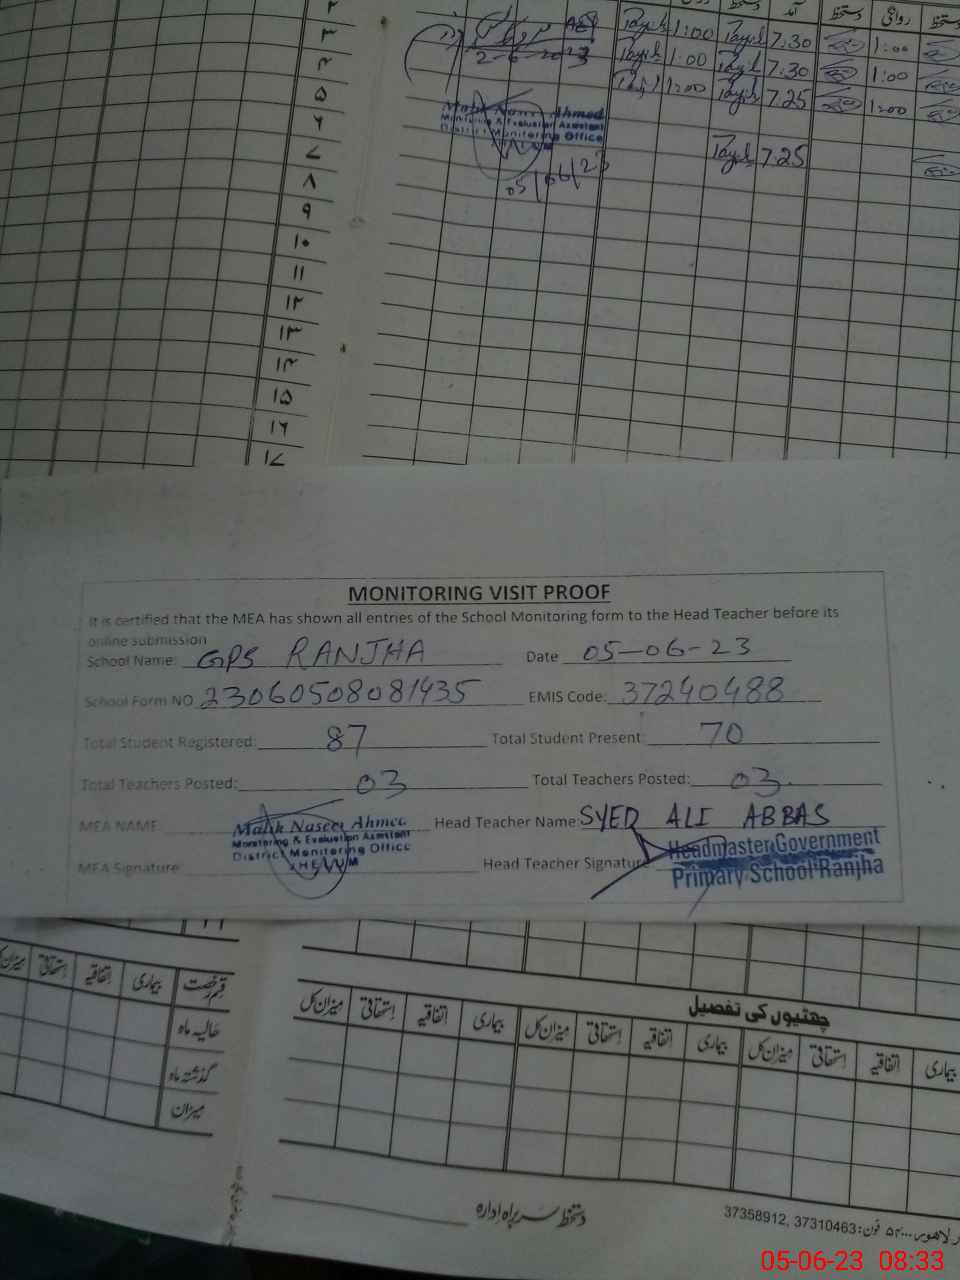 Tayib 1:00 Tayib 7.30 1:00
Tayib 1:00 Tayib 7.30 1:00
2-6-2023
1:00 Tayib 7.25 1:00
Tayib 7.25
Ahmed
Monitoring & Evaluation Assistant
District Monitoring Office
05/06/23
۳
۴
۵
۶
۷
۸
۹
۱۰
۱۱
۱۲
۱۳
۱۴
۱۵
۱۶
۱۷
MONITORING VISIT PROOF
It is certified that the MEA has shown all entries of the School Monitoring form to the Head Teacher before its
online submission
School Name: GPS RANJHA Date 05-06-23
School Form NO 23060508081435 EMIS Code: 37240488
Total Student Registered: 87 Total Student Present: 70
Total Teachers Posted: 03 Total Teachers Posted: 03
MEA NAME: Malik Naseer Ahmed Head Teacher Name: SYED ALI ABBAS
Monitoring & Evaluation Assistant
District Monitoring Office
MEA Signature: Head Teacher Signature
Headmaster Government
Primary School Ranjha
چھٹیوں کی تفصیل
قسم رخصت بیماری اتفاقیہ استحقاقی میزان
حالیہ ماہ
گذشتہ ماہ
میزان
بیماری اتفاقیہ استحقاقی میزان کل بیماری اتفاقیہ استحقاقی میزان کل بیماری اتفاقیہ استحقاقی میزان کل
دستخط سربراہ ادارہ
فون: 37310463, 37358912
05-06-23 08:33